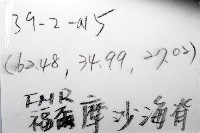 39-2-a15
(62.48, 34.99, 27.02)
INR
福 摩 沙 海 脊